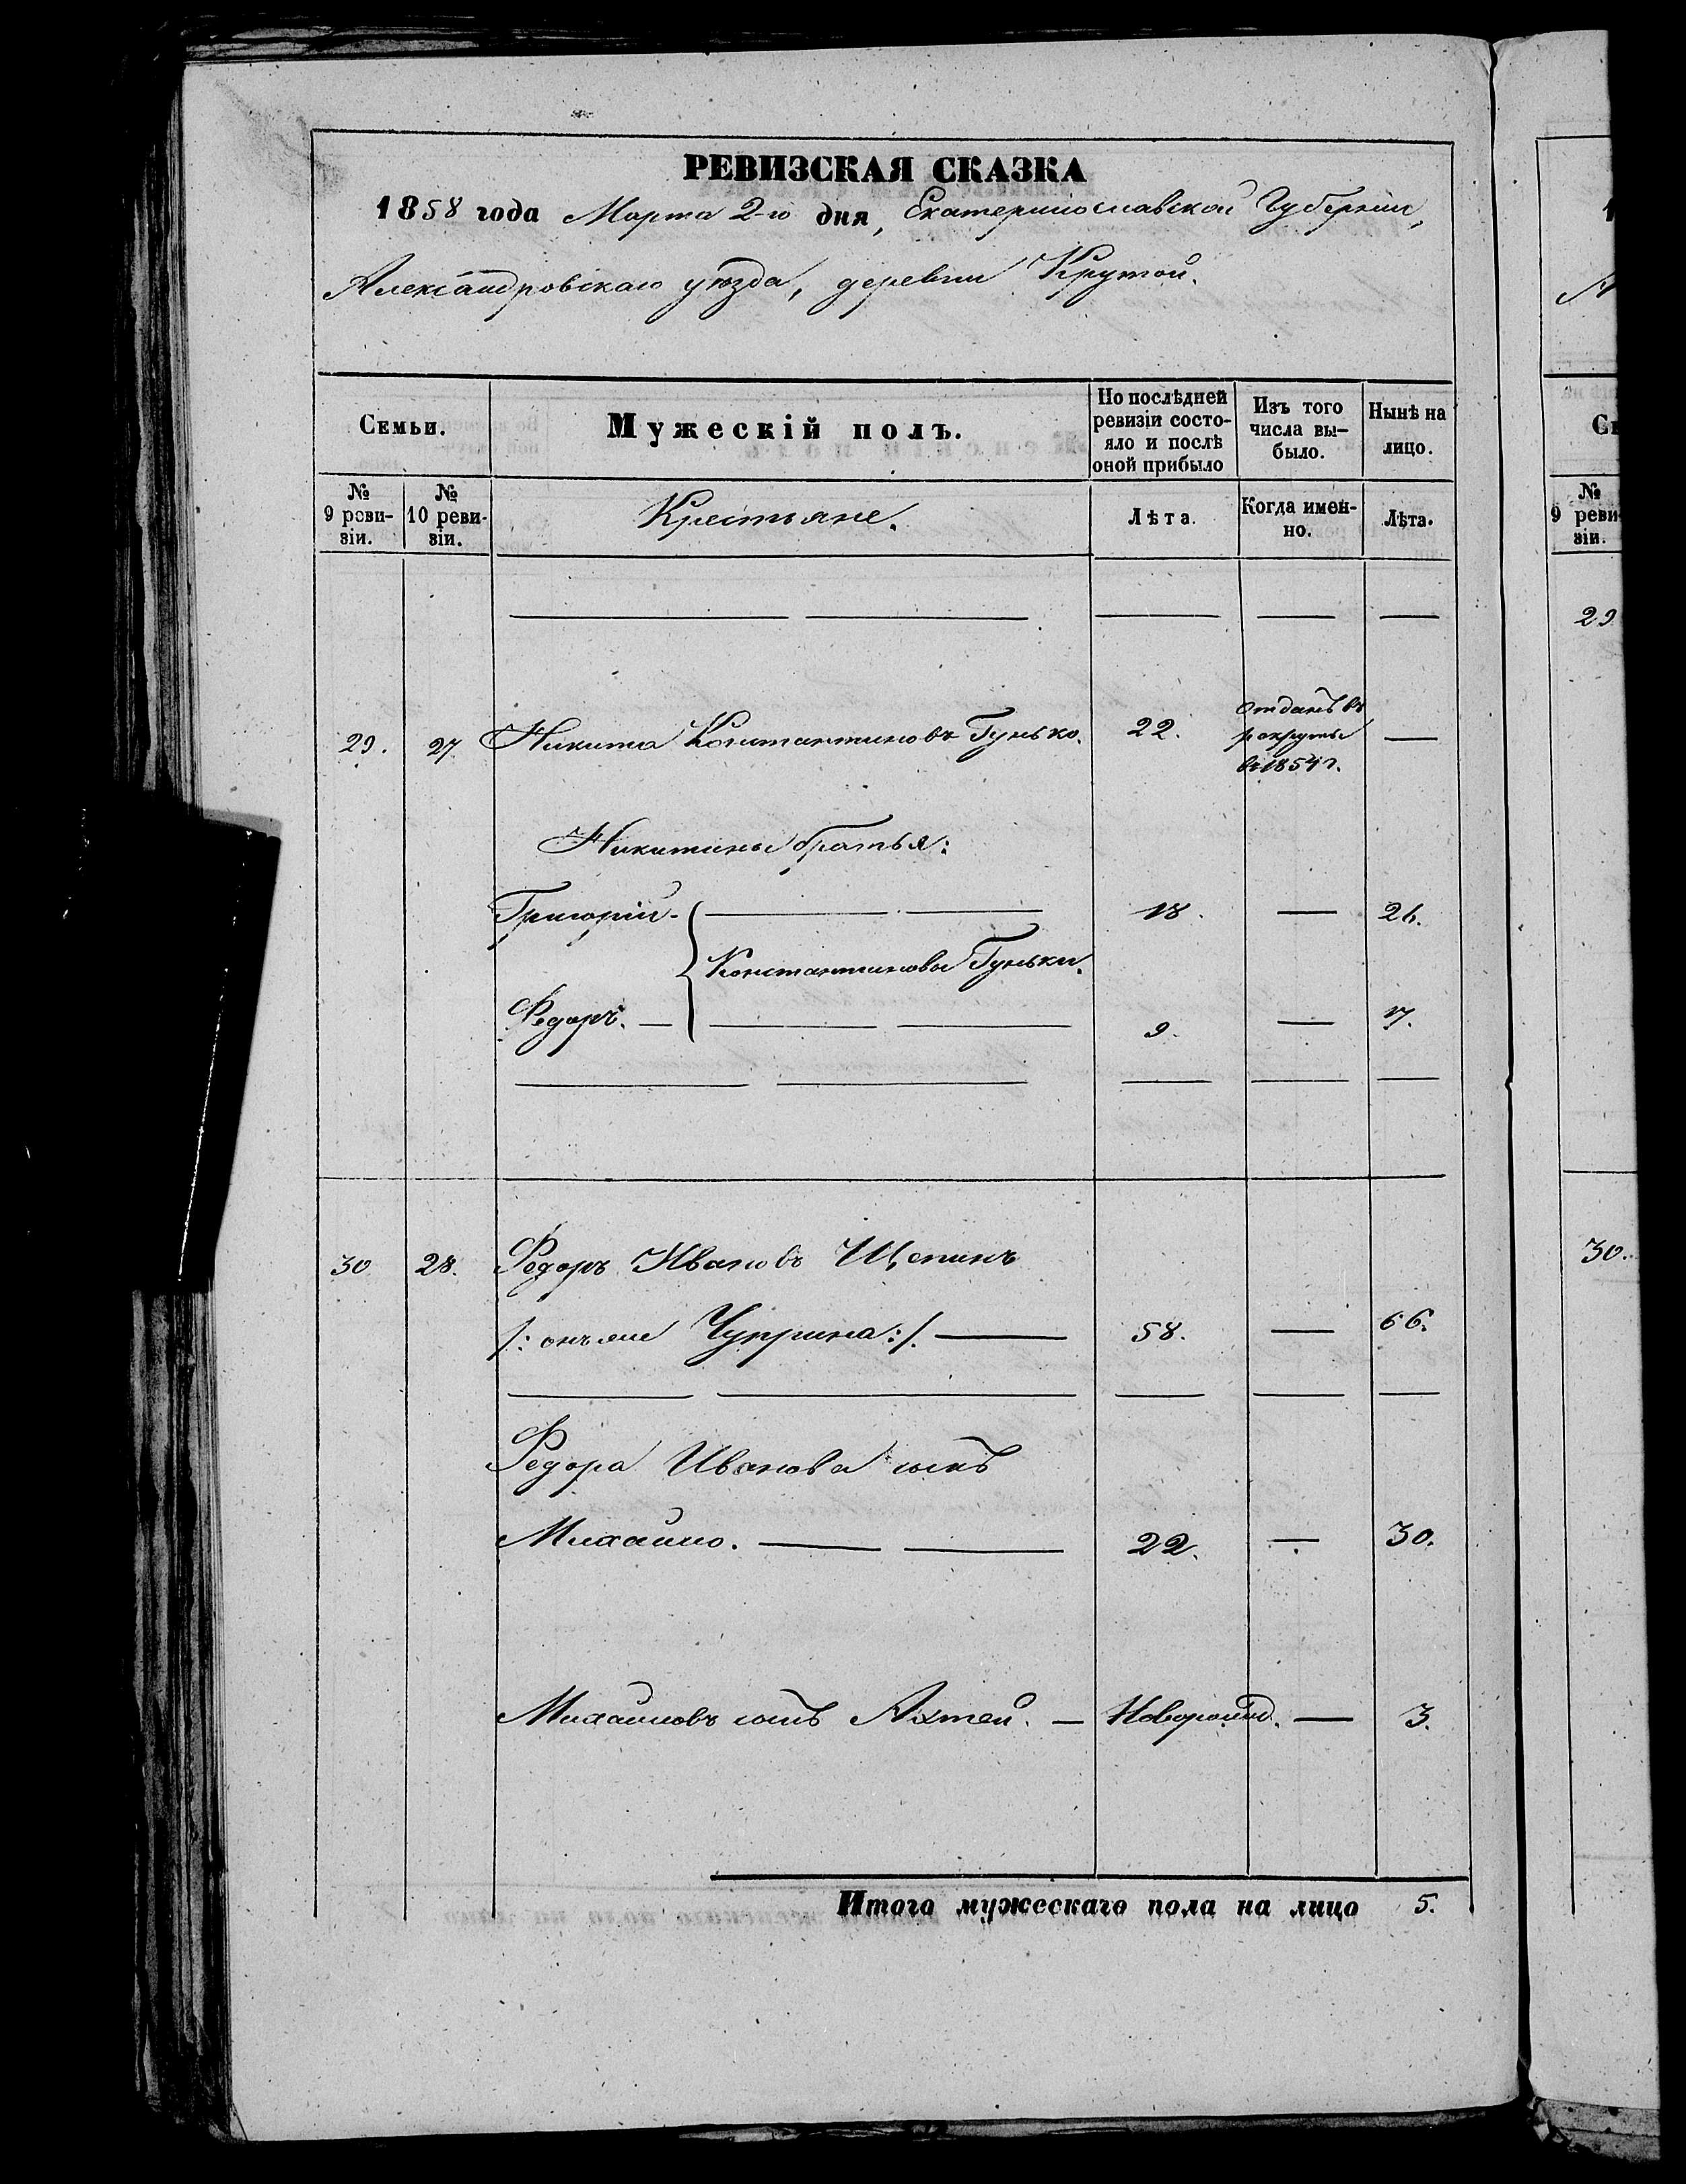 РЕВИЗСКАЯ СКАЗКА
1858 года Марта 2-го дня, Екатеринославской Губернии,
Александровскаго уѣзда, деревни Крутой.
Семьи.
Мужескій полъ.
По послѣдней ревизіи состояло и послѣ оной прибыло
Изъ того числа вы-было.
Нынѣ на лицо.
№ 9 реви-зіи.
№ 10 реви-зіи.
Крестьяне.
Лѣта.
Когда имен-но.
Лѣта.
29. 27 Никита Константиновъ Гунько. 22. отданъ въ рекруты въ 1854 г. —
Никитины братья:
Григорій — 18. — 26.
Константиновы Гуньки.
Федоръ. — 9. — 17.
30 28. Федоръ Ивановъ Щепинъ
/: онъ же Чуприна :/. — 58. — 66.
Федора Иванова сынъ
Михайло. — 22. — 30.
Михайловъ сынъ — Новорожд. — 3.
Итого мужескаго пола на лицо 5.
№ 9 реви-зіи.
29
30.